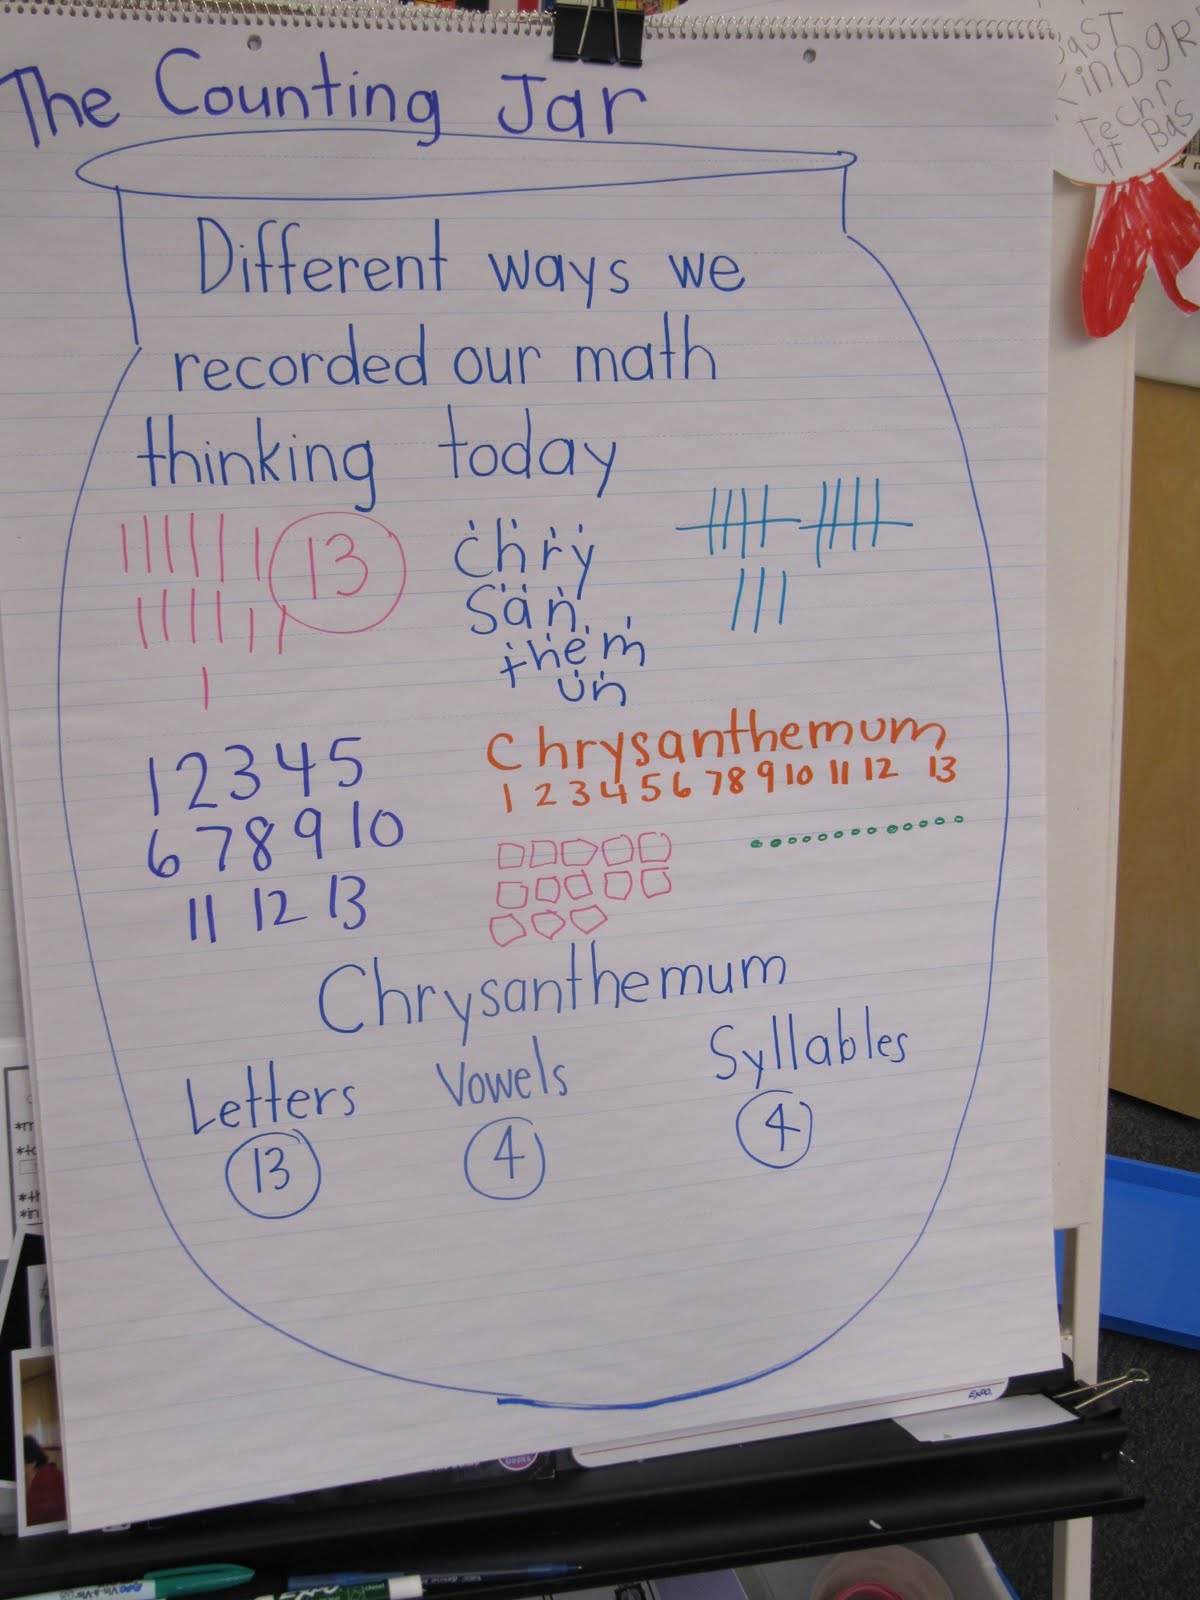 The Counting Jar
Different ways we
recorded our math
thinking today
13
chry
san
them
un
1 2 3 4 5
6 7 8 9 10
11 12 13
Chrysanthemum
1 2 3 4 5 6 7 8 9 10 11 12 13
Chrysanthemum
Letters Vowels Syllables
13 4 4
KinDgR
techr
at Bas
EXPO